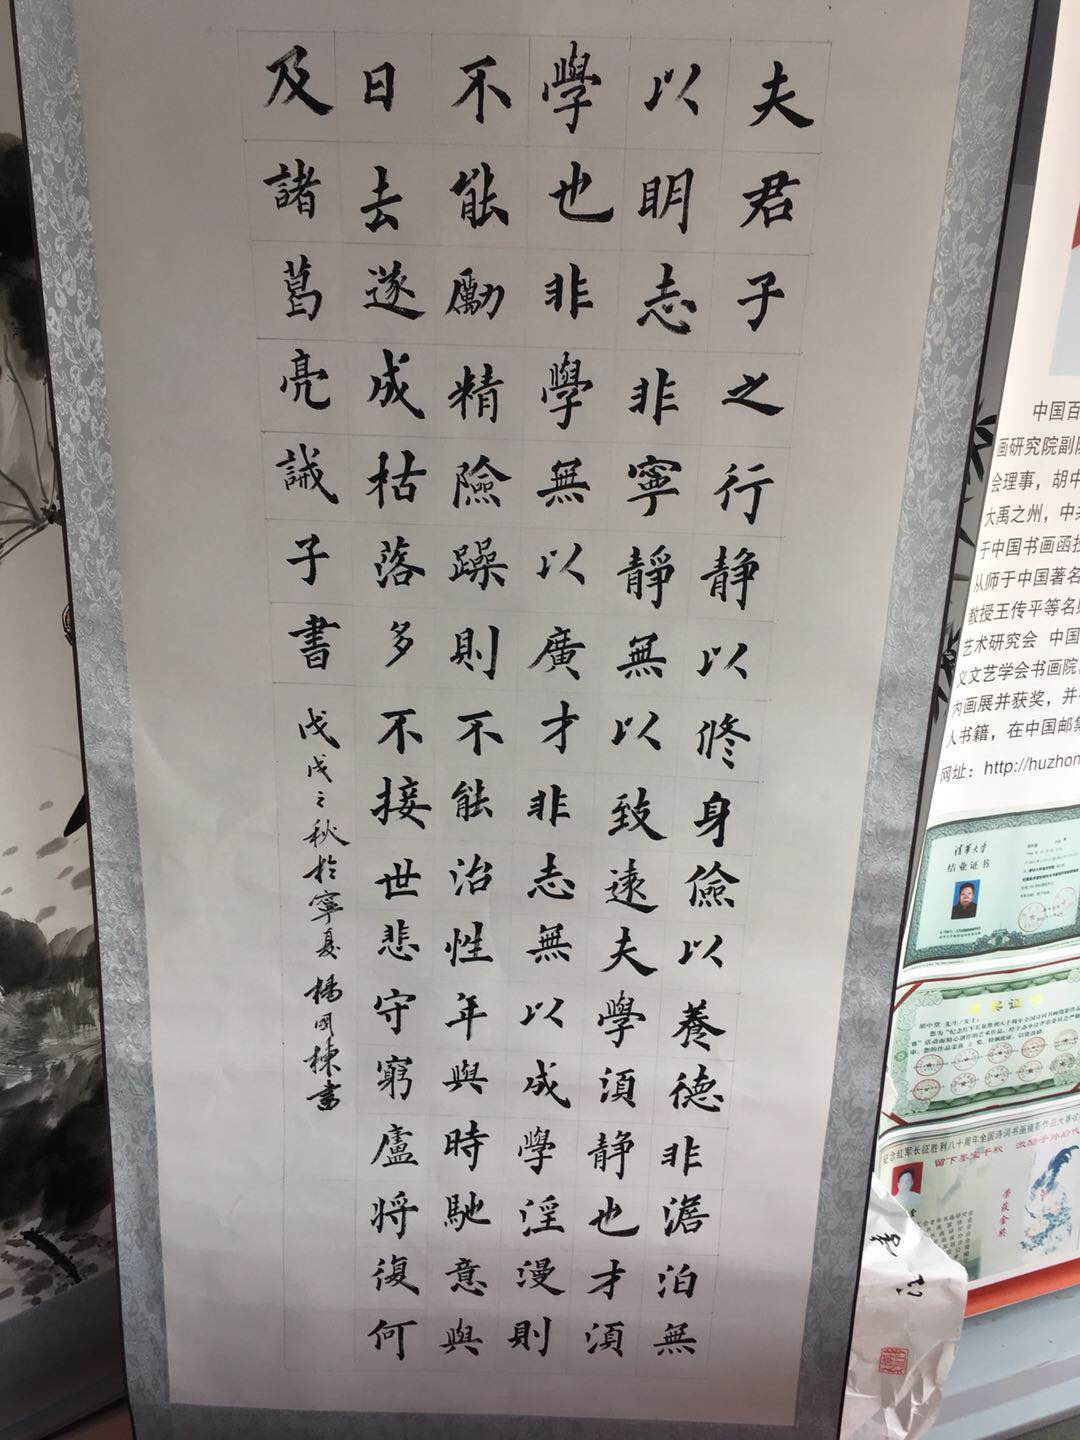 夫君子之行静以修身儉以養德非澹泊無
以明志非寧靜無以致遠夫學湏静也才湏
學也非學無以廣才非志無以成學淫漫則
不能勵精險躁則不能治性年與時馳意與
日去遂成枯落多不接世悲守窮廬將復何
及諸葛亮誡子書
戊戌之秋於寧夏楊国棟書
中国百
画研究院副
会理事，胡中
大禹之州，中
于中国书画函
从师于中国著名
教授王传平等名
艺术研究会 中国
义文艺学会书画院
内画展并获奖，并
人书籍，在中国邮
网址：http://huzhon
清華大学
结业证书
纪念红军长征胜利八十周年全国诗词书画摄影作品大赛
留下冬宝千秋
荣获金奖